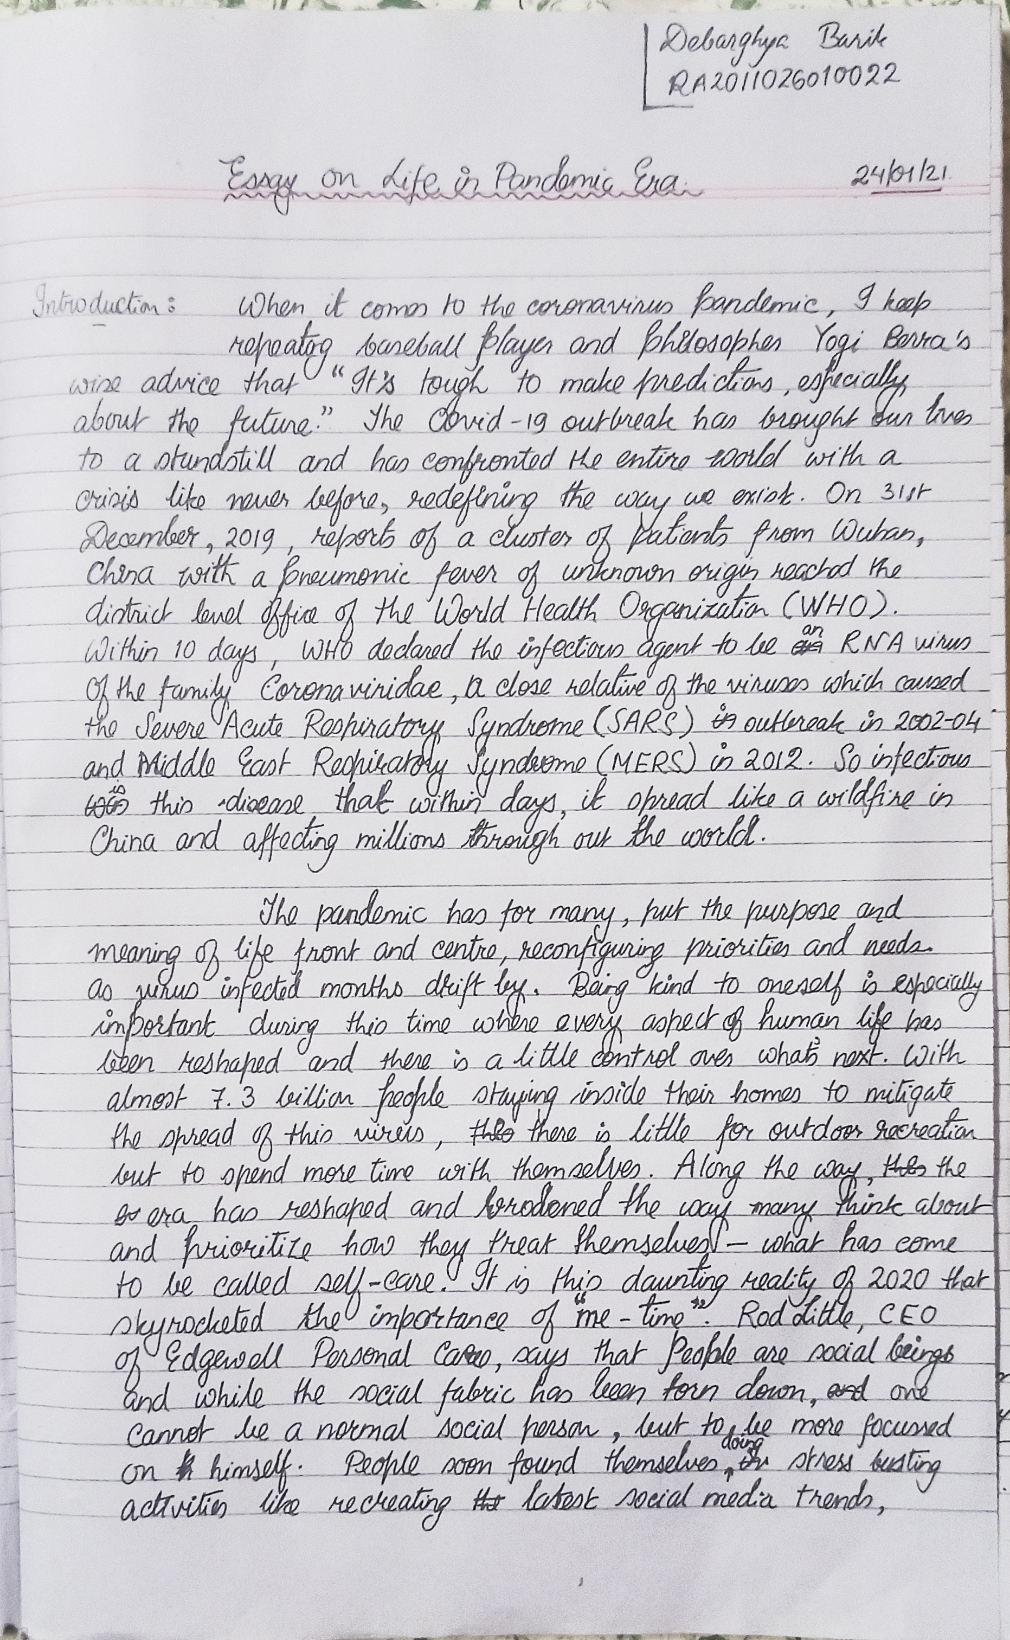 Debarghya Barik
RA2011026010022
Essay on Life in Pandemic Era.
24/01/21
Introduction: When it comes to the coronavirus pandemic, I keep
repeatog baseball player and philosopher Yogi Berra's
wise advice that "It's tough to make predictions, especially
about the future." The Covid-19 outbreak has brought our lives
to a standstill and has confronted the entire world with a
crisis like never before, redefining the way we exist. On 31st
December, 2019, reports of a cluster of patients from Wuhan,
China with a pneumonic fever of unknown origin reached the
district level office of the World Health Organization (WHO).
Within 10 days, WHO declared the infectious agent to be an RNA virus
of the family Coronaviridae, a close relative of the viruses which caused
the Severe Acute Respiratory Syndrome (SARS) outbreak in 2002-04
and Middle East Respiratory Syndrome (MERS) in 2012. So infectious
is this disease that within days, it spread like a wildfire in
China and affecting millions through out the world.
The pandemic has for many, put the purpose and
meaning of life front and centre, reconfiguring priorities and needs
as virus infected months drift by. Being kind to oneself is especially
important during this time where every aspect of human life has
been reshaped and there is a little control over what's next. With
almost 7.3 billion people staying inside their homes to mitigate
the spread of this virus, there is little for outdoor recreation
but to spend more time with themselves. Along the way, the
era has reshaped and brodened the way many think about
and prioritize how they treat themselves – what has come
to be called self-care. It is this daunting reality of 2020 that
skyrocketed the importance of "me-time". Rod Little, CEO
of Edgewell Personal Care, says that People are social beings
and while the social fabric has been torn down, one
cannot be a normal social person, but to be more focussed
on himself. People soon found themselves doing stress busting
activities like recreating latest social media trends,